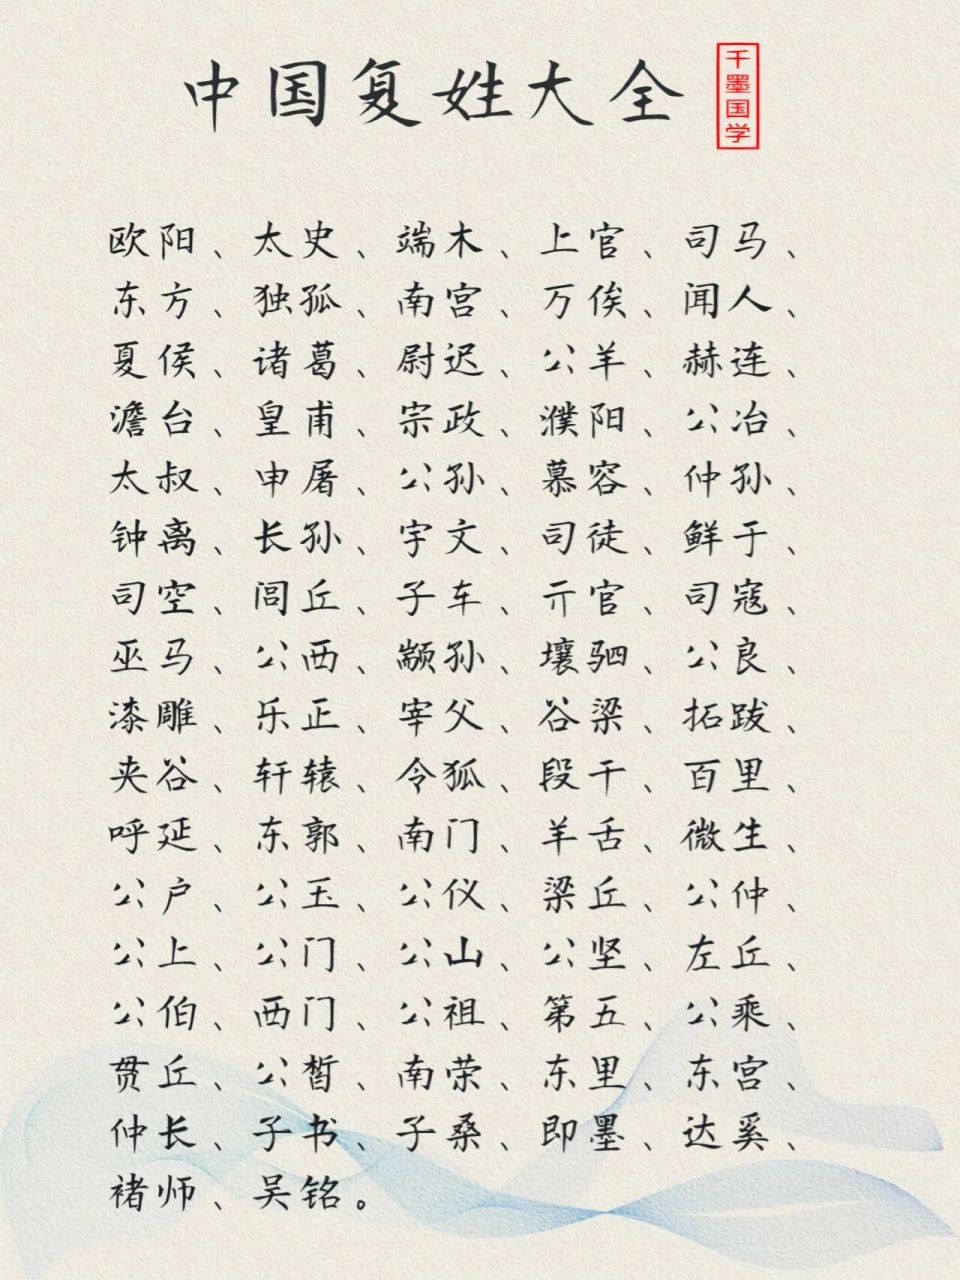 中国复姓大全
千墨国学
欧阳、太史、端木、上官、司马、
东方、独孤、南宫、万俟、闻人、
夏侯、诸葛、尉迟、公羊、赫连、
澹台、皇甫、宗政、濮阳、公冶、
太叔、申屠、公孙、慕容、仲孙、
钟离、长孙、宇文、司徒、鲜于、
司空、闾丘、子车、亓官、司寇、
巫马、公西、颛孙、壤驷、公良、
漆雕、乐正、宰父、谷梁、拓跋、
夹谷、轩辕、令狐、段干、百里、
呼延、东郭、南门、羊舌、微生、
公户、公玉、公仪、梁丘、公仲、
公上、公门、公山、公坚、左丘、
公伯、西门、公祖、第五、公乘、
贯丘、公皙、南荣、东里、东宫、
仲长、子书、子桑、即墨、达奚、
褚师、吴铭。